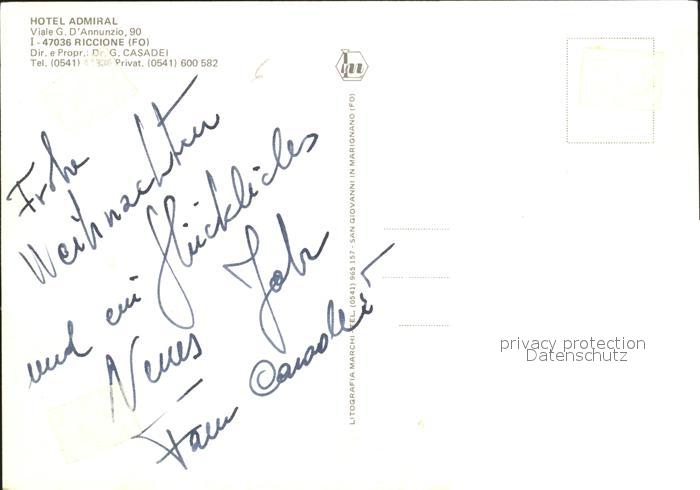 HOTEL ADMIRAL
Viale G. D'Annunzio, 90
I - 47036 RICCIONE (FO)
Dir. e Propr.: Dr. G. CASADEI
Tel. (0541) Privat. (0541) 600 582
Frohe
Weihnachten
und ein Glückliches
Neues Jahr
Fam Casadei
LITOGRAFIA MARCHI - TEL. (0541) 965 157 - SAN GIOVANNI IN MARIGNANO (FO)
privacy protection
Datenschutz